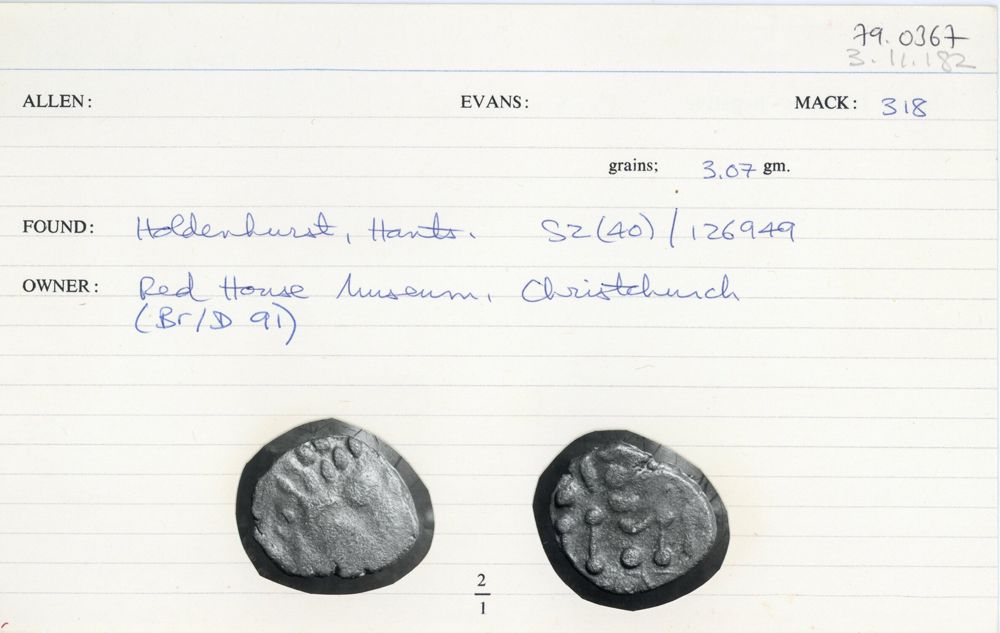 79.0367
3.11.182
ALLEN: EVANS: MACK: 318
grains; 3.07 gm.
FOUND: Holdenhurst, Hants. SZ(40)/126949
OWNER: Red House Museum, Christchurch
(Br/D 91)
2
1